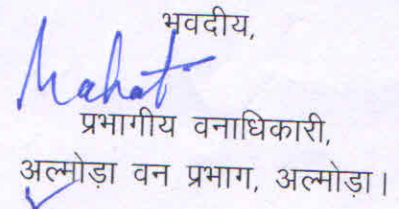 भवदीय,
Mahat
प्रभागीय वनाधिकारी,
अल्मोड़ा वन प्रभाग, अल्मोड़ा।